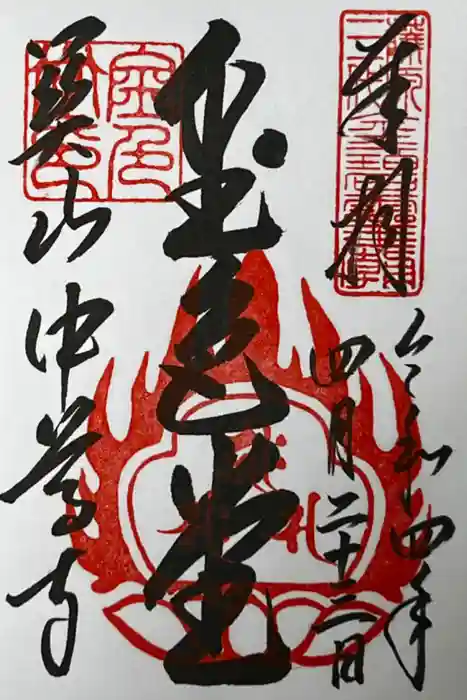 奉拝
令和四年
四月二十二日
金色堂
関山 中尊寺
金色